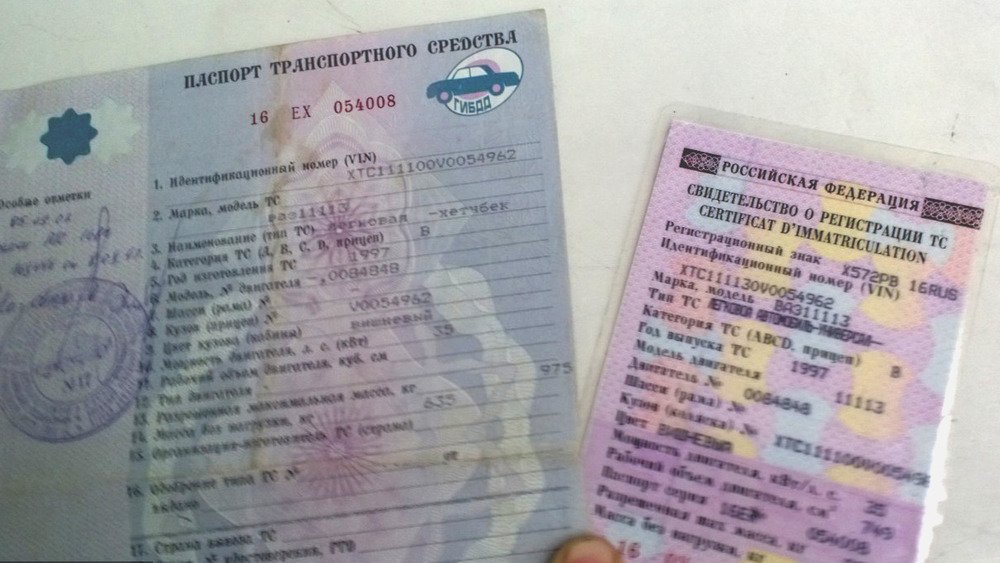 ПАСПОРТ ТРАНСПОРТНОГО СРЕДСТВА
16 ЕХ 054008
ГИБДД
Особые отметки
1. Идентификационный номер (VIN)
XTC111100V0054962
2. Марка, модель ТС
ВАЗ11113
3. Наименование (тип ТС) легковая -хетчбек
4. Категория ТС (А, В, С, D, прицеп) В
5. Год изготовления ТС 1997
6. Модель, № двигателя -,0084848
Шасси (рама) №
Кузов (прицеп) № V0054962
Цвет кузова (кабины) вишневый
Мощность двигателя, л. с. (кВт) 35
Рабочий объем двигателя, куб. см
Тип двигателя
Разрешенная максимальная масса, кг 975
14. Масса без нагрузки, кг 635
15. Организация-изготовитель ТС (страна)
16. Одобрение типа ТС № от
выдано
17. Страна вывоза ТС
№17
РОССИЙСКАЯ ФЕДЕРАЦИЯ
СВИДЕТЕЛЬСТВО О РЕГИСТРАЦИИ ТС
CERTIFICAT D'IMMATRICULATION
Регистрационный знак Х572РВ 16RUS
Идентификационный номер (VIN)
XTC111130V0054962
Марка, модель ВАЗ11113
Тип ТС ЛЕГКОВОЙ АВТОМОБИЛЬ-УНИВЕРСАЛ-
Категория ТС (ABCD, прицеп) В
Год выпуска ТС 1997
Модель двигателя 11113
Двигатель № 0084848
Шасси (рама) №
Кузов (коляска) № XTC111100V0054962
Цвет ВИШНЕВЫЙ
Мощность двигателя, кВт/л. с. 35
Рабочий объем двигателя, см³ 749
Паспорт серия 054008
Разрешенная max масса, кг
Масса без нагрузки, кг
16